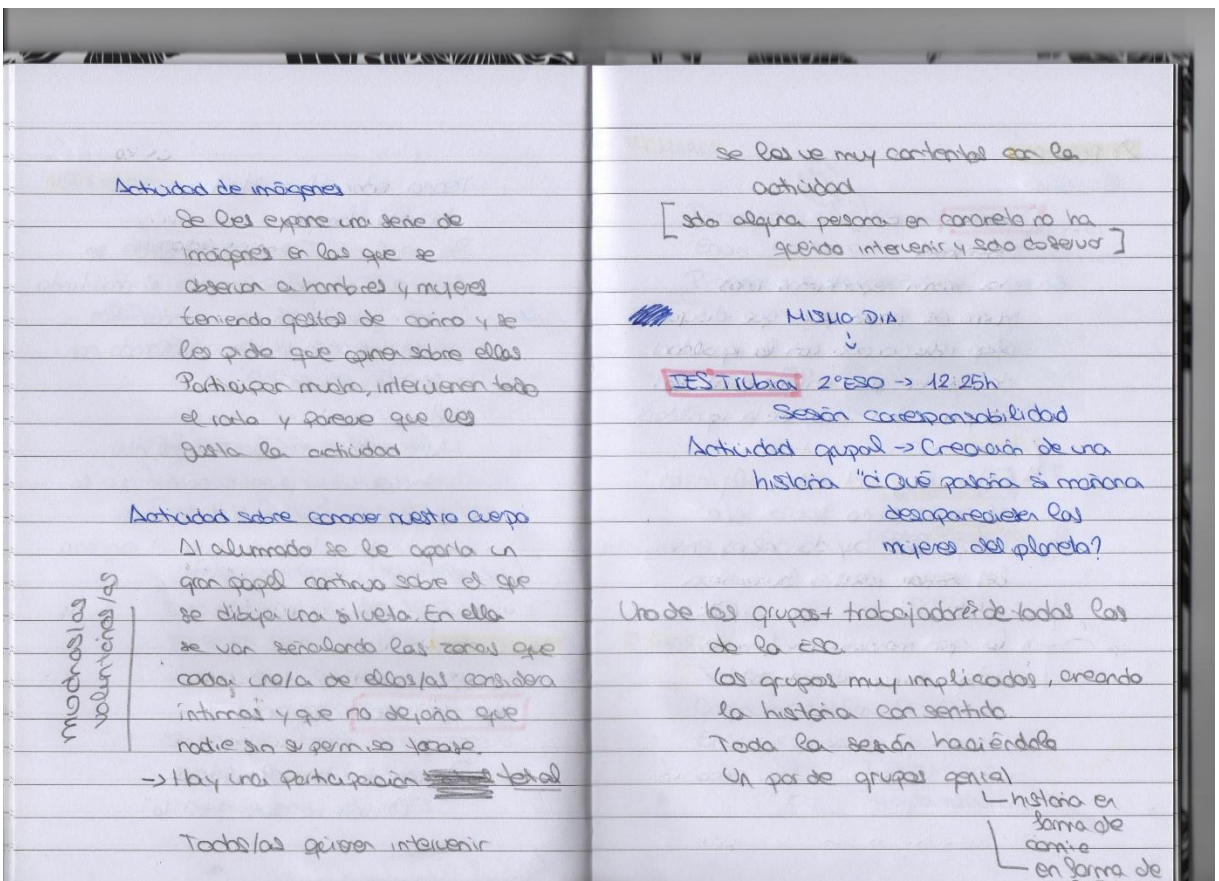 Actividad de imágenes
Se les expone una serie de
imágenes en las que se
observan a hombres y mujeres
teniendo gestos de cariño y se
les pide que opinen sobre ellas.
Participan mucho, intervienen todo
el rato y parece que les
gusta la actividad
Actividad sobre conocer nuestro cuerpo
Al alumnado se le aporta un
gran papel continuo sobre el que
se dibuja una silueta. En ella
se van señalando las zonas que
cada uno/a de ellos/as considera
íntimas y que no dejaría que
nadie sin su permiso tocase.
-> Hay una participación total
Todos/as quieren intervenir
muchos/as
voluntarios/as
se les ve muy contentos con la
actividad
[solo alguna persona en concreto no ha
querido intervenir y solo observar]
MISMO DIA
IES Trubia 2ºESO -> 12.25h
Sesión corresponsabilidad
Actividad grupal -> Creación de una
historia "¿Qué pasaría si mañana
desapareciesen las
mujeres del planeta?
Uno de los grupos + trabajadores de todos los
de la ESO
Los grupos muy implicados, creando
la historia con sentido.
Toda la sesión haciéndolo
Un par de grupos genial
historia en
forma de
comic
en forma de